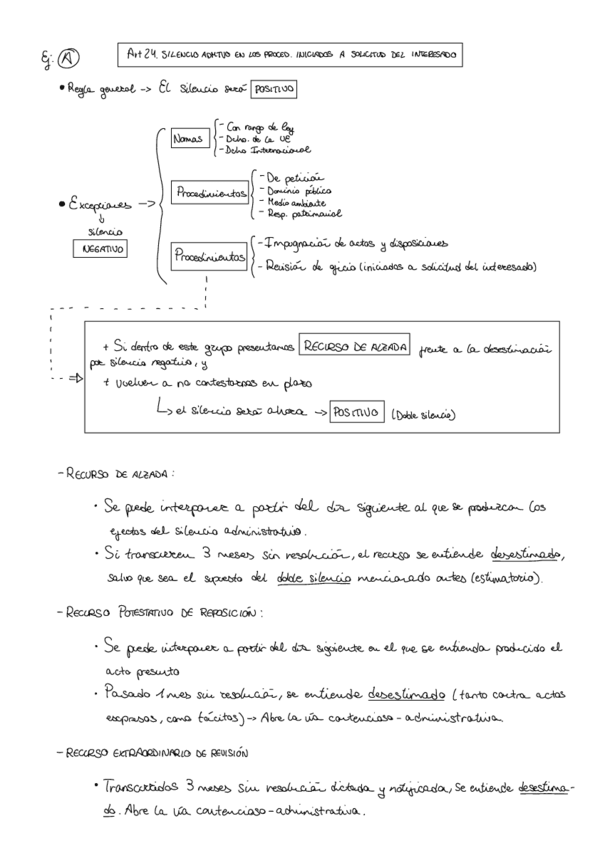 Ej: A
Art 24. SILENCIO ADMTIVO EN LOS PROCED. INICIADOS A SOLICITUD DEL INTERESADO
• Regla general -> El silencio será POSITIVO
Normas
- Con rango de ley
- Dcho. de la UE
- Dcho Internacional
• Excepciones ->
silencio
NEGATIVO
Procedimientos
- De petición
- Dominio público
- Medio ambiente
- Resp. patrimonial
Procedimientos
- Impugnación de actos y disposiciones
- Revisión de oficio (iniciados a solicitud del interesado)
+ Si dentro de este grupo presentamos RECURSO DE ALZADA frente a la desestimación
por silencio negativo, y
+ vuelven a no contestarnos en plazo
↳ el silencio será ahora → POSITIVO (Doble silencio)
- RECURSO DE ALZADA:
· Se puede interponer a partir del día siguiente al que se produzcan los
efectos del silencio administrativo.
· Si transcurren 3 meses sin resolución, el recurso se entiende desestimado,
salvo que sea el supuesto del doble silencio mencionado antes (estimatorio).
- RECURSO POTESTATIVO DE REPOSICIÓN:
· Se puede interponer a partir del día siguiente en el que se entienda producido el
acto presunto
· Pasado 1 mes sin resolución, se entiende desestimado (tanto contra actos
expresos, como tácitos) -> Abre la vía contencioso-administrativa
- RECURSO EXTRAORDINARIO DE REVISIÓN
· Transcurridos 3 meses sin resolución dictada y notificada, se entiende desestima-
do. Abre la vía contencioso-administrativa.